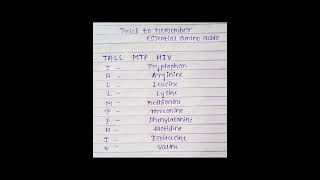 Trick to remember
essential amino acids
TALL MTP HIV
T - Tryptophan
A - Arginine
L - Leucine
L - Lysine
M - Methionine
T - Threonine
P - Phenylalanine
H - Histidine
I - Isoleucine
V - Valine